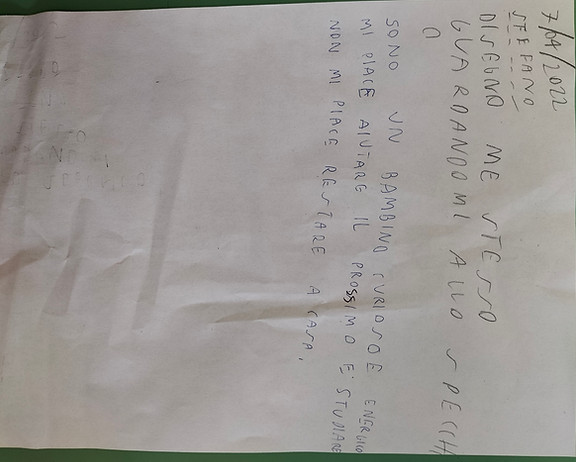 7/04/2022
STEFANO
DISEGNO ME STESSO
GUARDANDOMI ALLO SPECCHI
O
SONO UN BAMBINO CURIOSO E ENERGICO
MI PIACE AIUTARE IL PROSSIMO E STUDIARE
NON MI PIACE RESTARE A CASA.